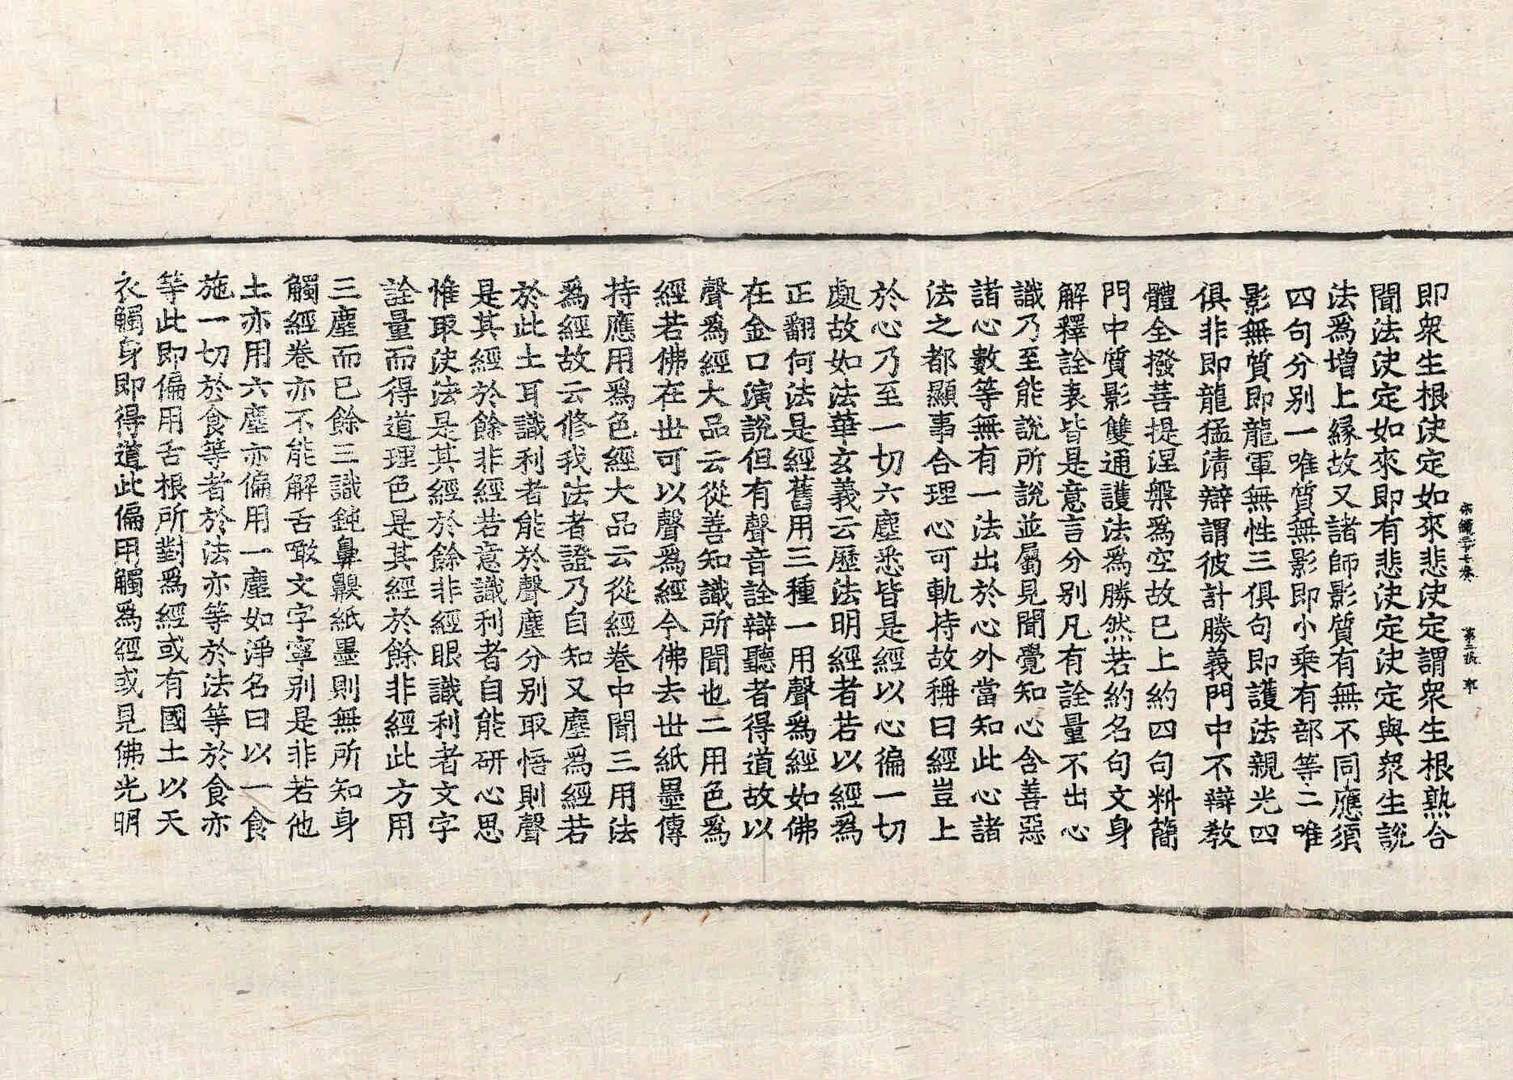 即衆生根決定如來悲決定謂衆生根熟合
聞法決定如來即有悲決定決定與衆生說
法爲增上緣故又諸師影質有無不同應須
四句分別一唯質無影即小乘有部等二唯
影無質即龍軍無性三俱句即護法親光四
俱非即龍猛清辯謂彼計勝義門中不辯教
體全撥菩提涅槃爲空故已上約四句料簡
門中質影雙通護法爲勝然若約名句文身
解釋詮表皆是意言分別凡有詮量不出心
識乃至能說所說並屬見聞覺知心含善惡
諸心數等無有一法出於心外當知此心諸
法之都顯事合理心可軌持故稱曰經豈上
於心乃至一切六塵悉皆是經以心徧一切
處故如法華玄義云歷法明經者若以經爲
正翻何法是經舊用三種一用聲爲經如佛
在金口演說但有聲音詮辯聽者得道故以
聲爲經大品云從善知識所聞也二用色爲
經若佛在世可以聲爲經今佛去世紙墨傳
持應用爲色經大品云從經卷中聞三用法
爲經故云修我法者證乃自知又塵爲經若
於此土耳識利者能於聲塵分別取悟則聲
是其經於餘非經若意識利者自能研心思
惟取決法是其經於餘非經眼識利者文字
詮量而得道理色是其經於餘非經此方用
三塵而已餘三識鈍鼻齅紙墨則無所知身
觸經卷亦不能解舌噉文字寧別是非若他
土亦用六塵亦偏用一塵如淨名曰以一食
施一切於食等者於法亦等於法等於食亦
等此即偏用舌根所對爲經或有國土以天
衣觸身即得道此偏用觸爲經或見佛光明